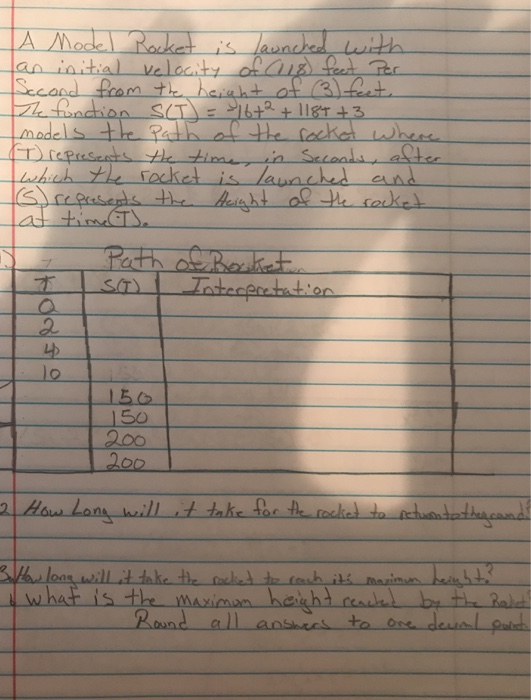 A Model Rocket is launched with
an initial velocity of (118) feet Per
Second from the height of (3) feet.
The function S(T) = -16t² + 118T + 3
models the Path of the rocket where
(T) represents the time, in Seconds, after
which the rocket is launched and
(S) represents the Height of the rocket
at time(T).
Path of Rocket
T S(T) Interpretation
0
2
4
10
150
150
200
200
2 How Long will it take for the rocket to return to the ground?
3. How long will it take the rocket to reach its maximum height?
& what is the maximum height reached by the
Round all answers to one decimal point